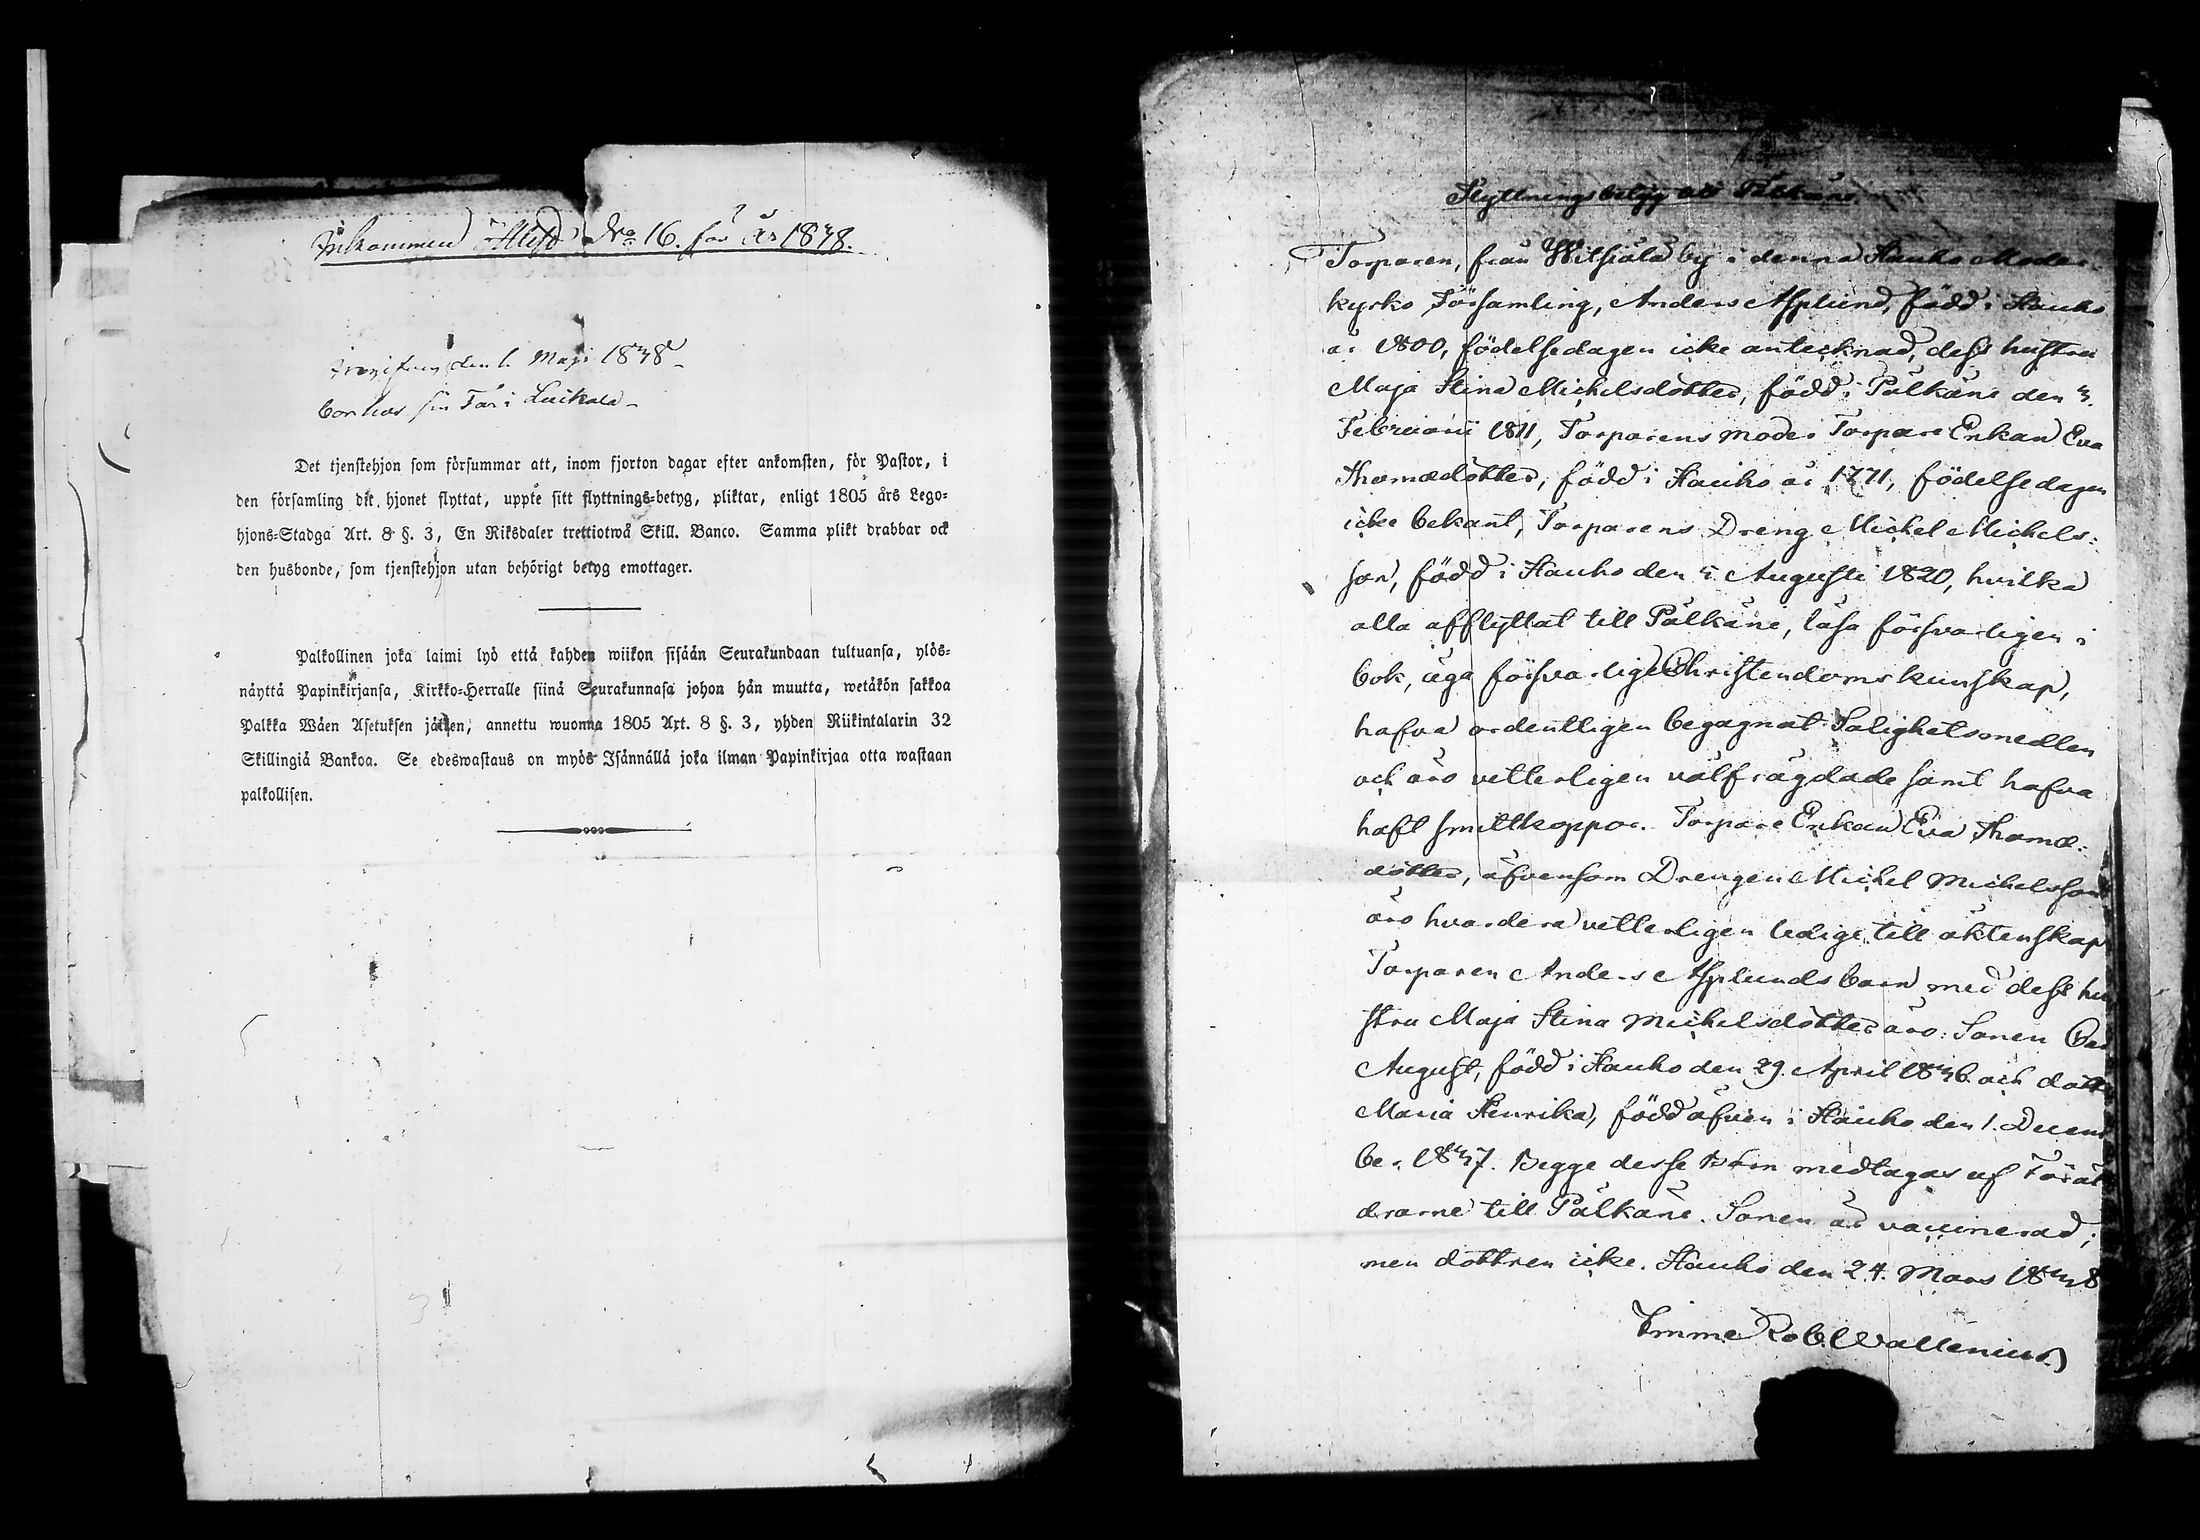 Inkommen Attest No 16. för År 1848.
den 1. Maji 1848
bor hos sin Far i Luikala
Det tjenstehjon som försummar att, inom fjorton dagar efter ankomsten, för Pastor, i
den församling dit hjonet flyttat, uppte sitt flyttnings-betyg, pliktar, enligt 1805 års Lego-
hjons-Stadga Art. 8 §. 3, En Riksdaler trettiotwå Skill. Banco. Samma plikt drabbar ock
den husbonde, som tjenstehjon utan behörigt betyg emottager.
Palkollinen joka laimi lyö että kahden wiikon sisään Seurakundaan tultuansa, ylös-
näyttä Papinkirjansa, Kirkko-Herralle siinä Seurakunnasa johon hän muutta, wetäkön sakkoa
Palkka Wäen Asetuksen jälken, annettu wuonna 1805 Art. 8 §. 3, yhden Riikintalarin 32
Skillingiä Bankoa. Se edeswastaus on myös Isännällä joka ilman Papinkirjaa otta wastaan
palkollisen.
Flyttningsbetyg till Pälkäne.
Torparen, från Witsiälä by i denna Hauho Moder-
kyrko Församling, Anders Asplund, född i Hauho
år 1800, födelsedagen icke antecknad, dess hustru
Maja Stina Michelsdotter, född i Pälkäne den 4.
Februarii 1811, Torparens moder Torpare Enkan Eva
Thomædotter, född i Hauho år 1771, födelsedagen
icke bekant, Torparens Dreng Michel Michels-
son, född i Hauho den 5. Augusti 1820, hvilka
alla afflyttat till Pälkäne, läsa försvarligen i
bok, äga försvarlig Christendoms kunskap,
hafva ordentligen begagnat Salighetsmedlen
och äro vetterligen välfrägdade samt hafva
haft smittkoppor. Torpare Enkan Eva Thomæ-
dotter, äfvensom Drengen Michel Michelsson
äro hvardera vetterligen ledige till äktenskap
Torparen Anders Asplunds barn med dess hu
stru Maja Stina Michelsdotter äro: Sonen
August, född i Hauho den 29. April 1846. och dott
Maria Henrika, född äfven i Hauho den 1. Decem
ber 1847. Begge desse Barn medtagas af Föräl
drarne till Pälkäne. Sonen är vaccinerad;
men dottren icke. Hauho den 24. Mars 1848
Imme Rob. Wallenius